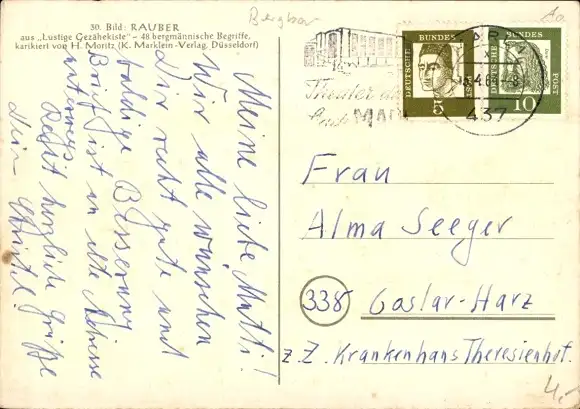 30. Bild: RAUBER
aus „Lustige Gezähekiste" – 48 bergmännische Begriffe,
karikiert von H. Moritz (K. Marklein-Verlag, Düsseldorf)
Bergbau
Meine liebe Mutti!
Wir alle wünschen
Dir recht gute und
baldige Besserung
Brief ist in alte Adresse
unterwegs
Recht herzliche Grüße
dein
Theater
MARL
437
DEUTSCHE BUNDESPOST
15
DEUTSCHE BUNDESPOST
10
Frau
Alma Seeger
338 Goslar-Harz
z. Z. Krankenhaus Theresienhof.
4,-